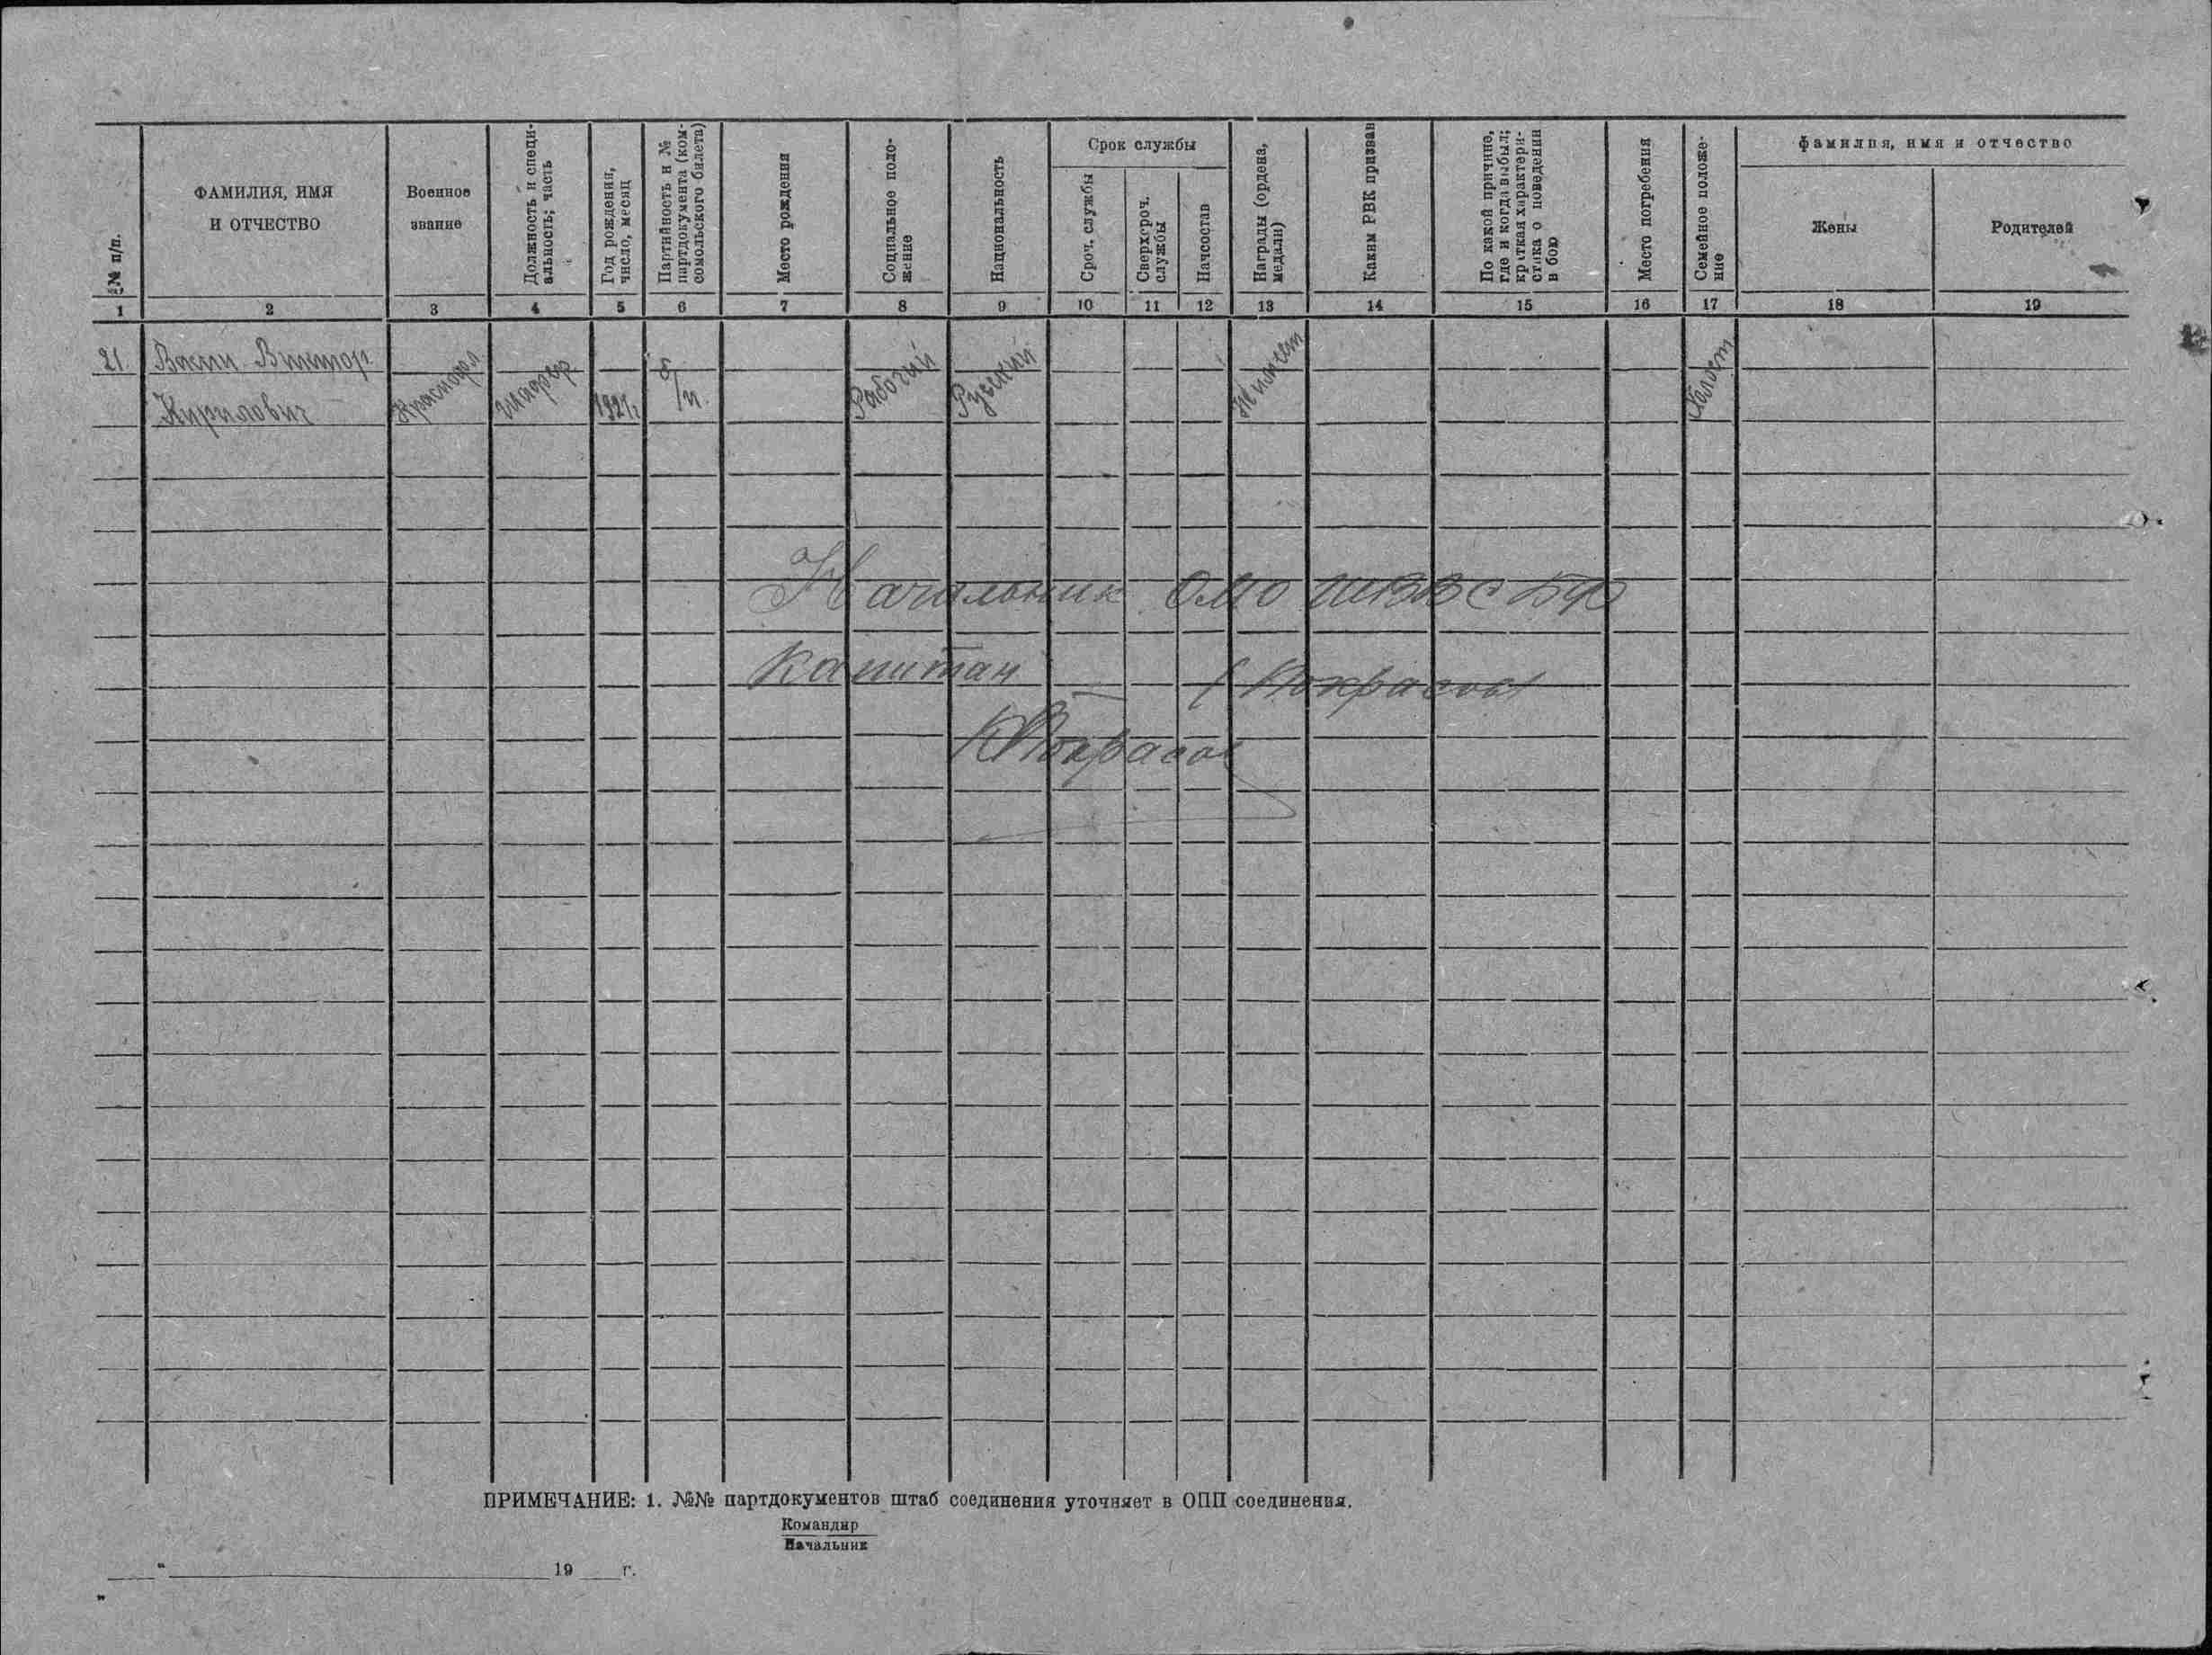 №№ п/п.
ФАМИЛИЯ, ИМЯ
И ОТЧЕСТВО
Военное
звание
Должность и специ-
альность; часть
Год рождения,
число, месяц
Партийность и №
партдокумента (ком-
сомольского билета)
Место рождения
Социальное поло-
жение
Национальность
Срок службы
Сроч. службы
Сверхсроч.
службы
Начсостав
Награды (ордена,
медали)
Каким РВК призван
По какой причине,
где и когда выбыл;
краткая характери-
стика о поведении
в бою
Место погребения
Семейное положе-
ние
фамилия, имя и отчество
Жены
Родителей
1 2 3 4 5 6 7 8 9 10 11 12 13 14 15 16 17 18 19
21. Виктор
Кирилович Краснофл 1921г б/п Рабочий Руский Холост
Начальник ОМО ШВВС БФ
Капитан (Покрасов)
Покрасов
ПРИМЕЧАНИЕ: 1. №№ партдокументов штаб соединения уточняет в ОПП соединения.
Командир
Начальник
" 19 г.
"